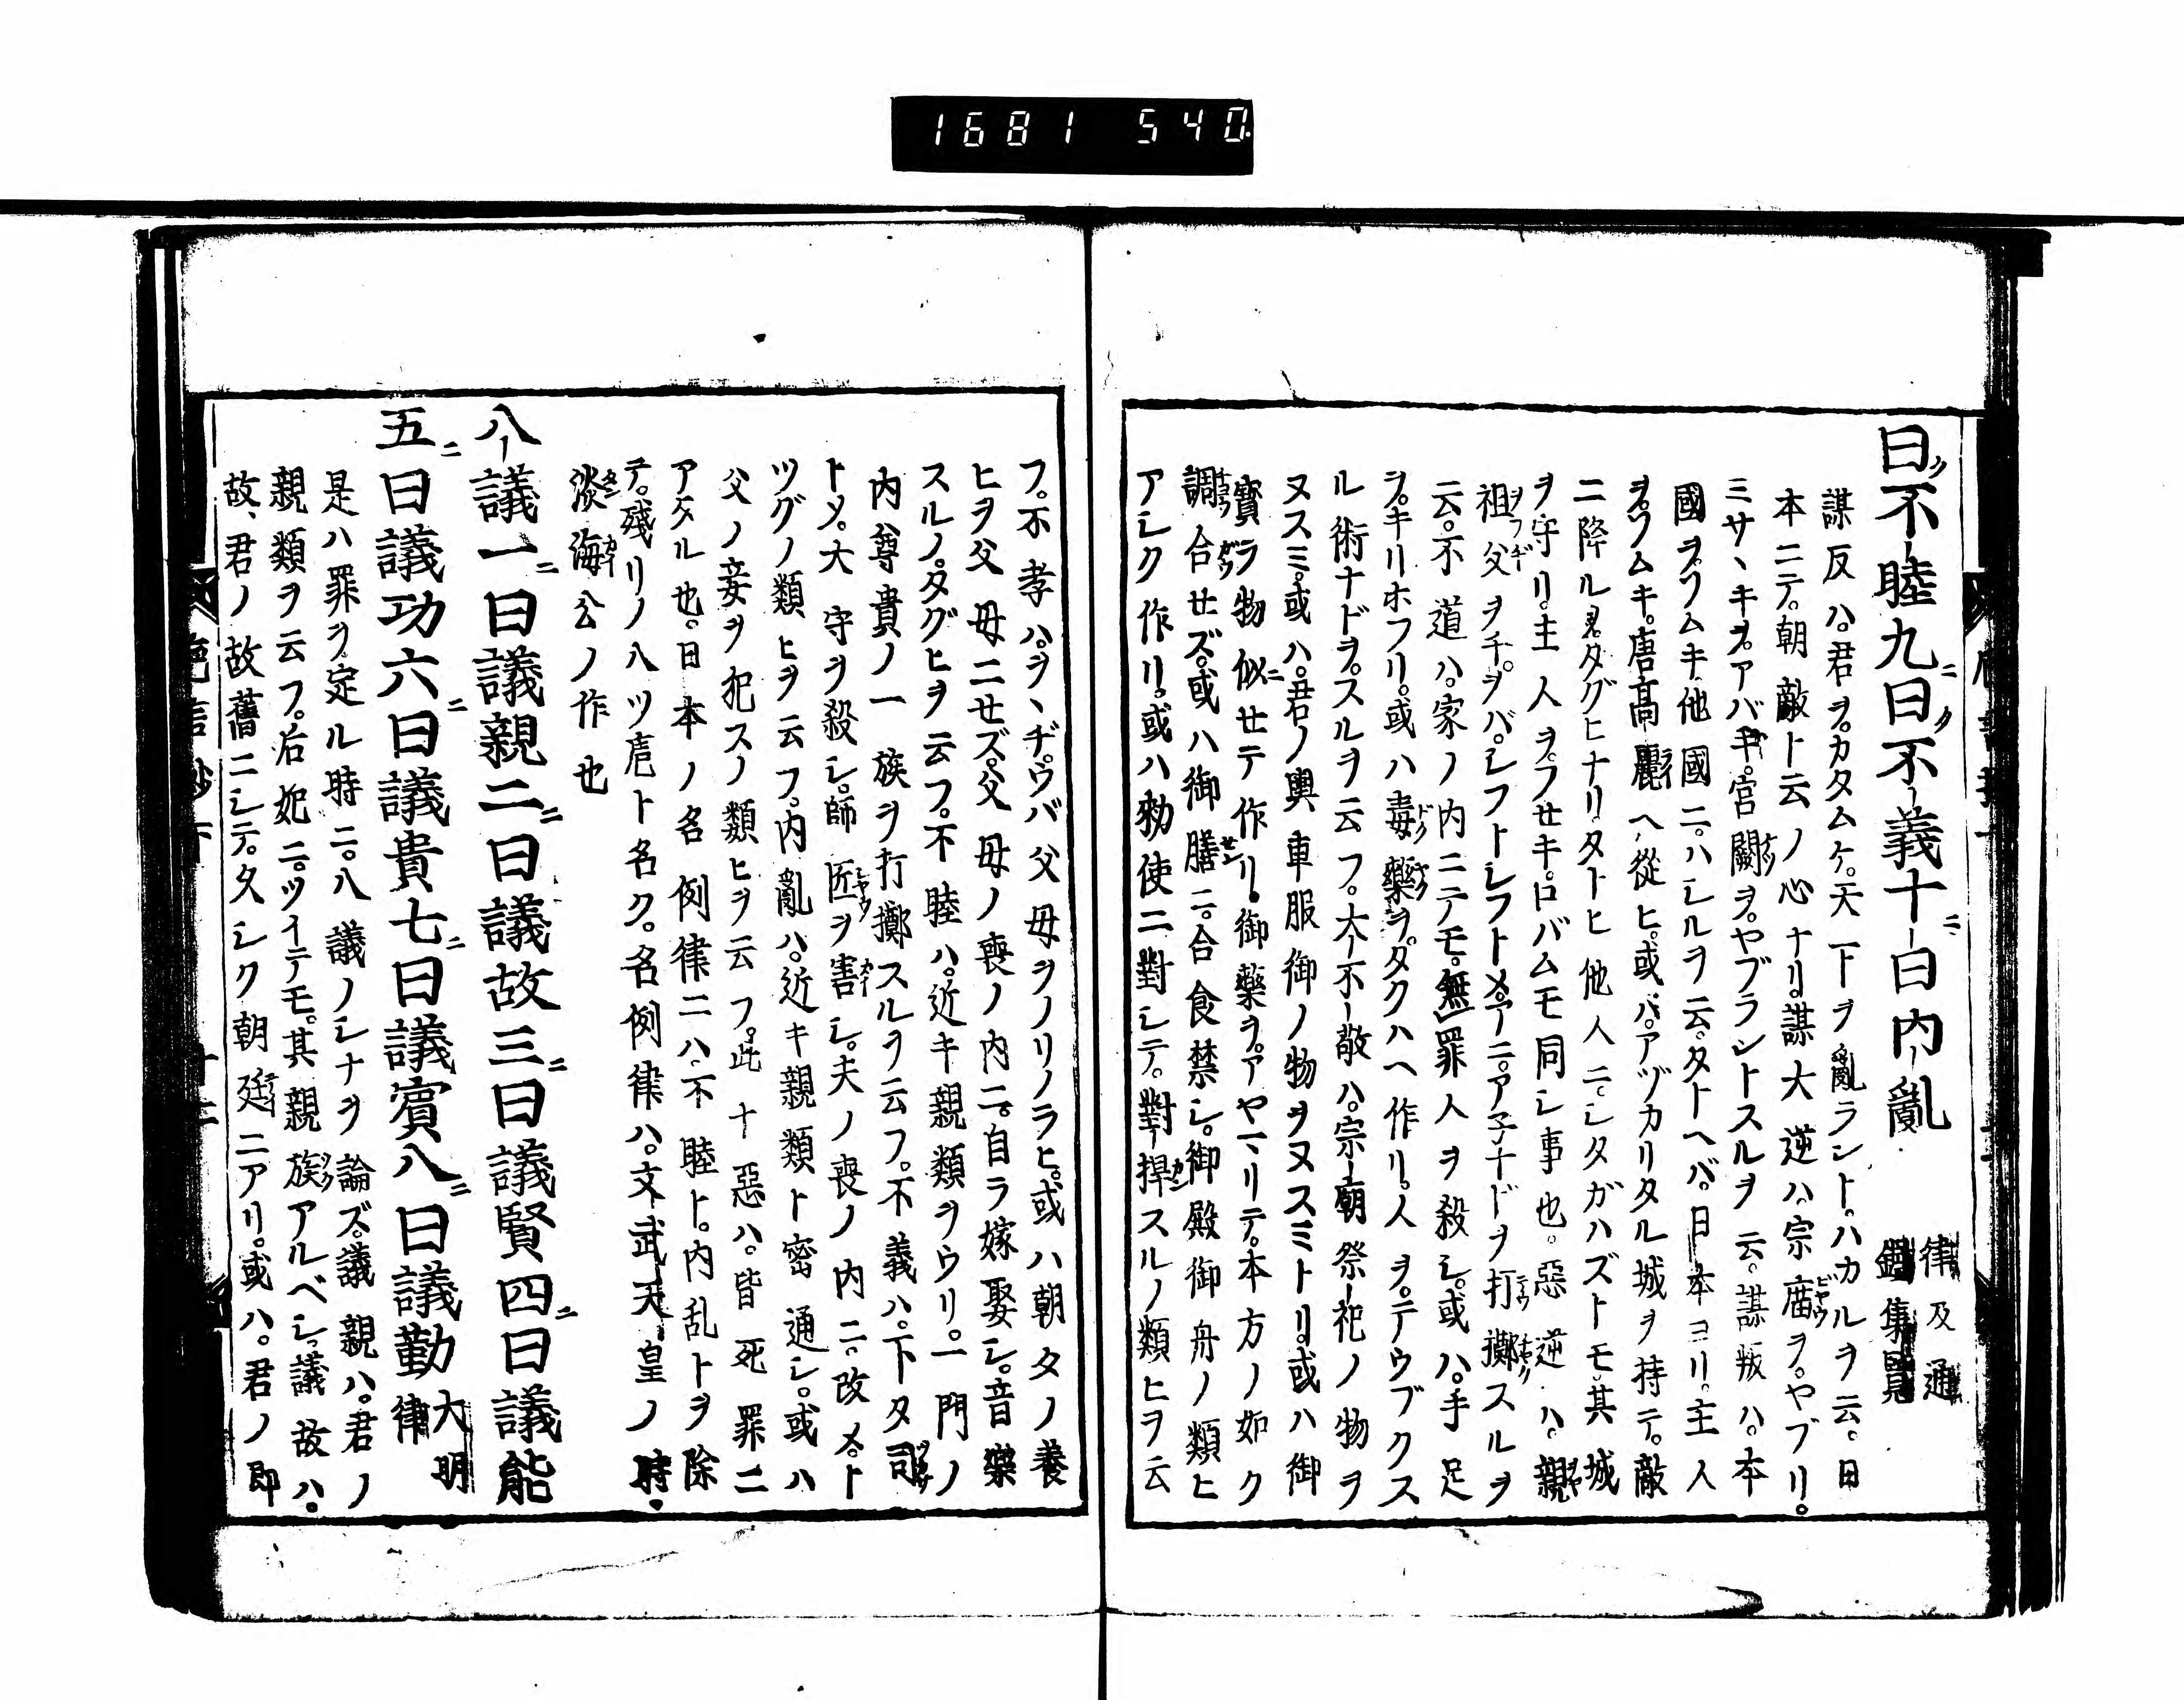 1681 540
曰不睦九曰不義十曰内亂 律及通鑑集覽
謀反ハ。君ヲ。カタムケ。天下ヲ亂ラント。ハカルヲ云。日
本ニテ。朝敵ト云ノ心ナリ。謀大逆ハ。宗庿ヲ。ヤブリ。
ミサヽキヲ。アバキ。宮闕ヲ。ヤブラントスルヲ云。謀叛ハ。本
國ヲ。ソムキ。他國ニ。ハシルヲ云。タトヘバ。日本ヨリ。主人
ヲ。ソムキ。唐高麗ヘ。從ヒ。或ハ。アヅカリタル城ヲ持テ。敵
ニ降ル者。タグヒナリ。タトヒ他人ニ。シタガハズトモ。其城
ヲ守リ。主人ヲ。フセキ。ロバムモ同シ事也。惡逆ハ。親
祖父ヲチ。ヲバ。シフトシフトメ。アニ。アネナドヲ打擲スルヲ
云。不道ハ。家ノ内ニテモ。無罪人ヲ殺シ。或ハ。手足
ヲ。キリホフリ。或ハ毒藥ヲ。タクハヘ作リ。人ヲ。テウブクス
ル術ナドヲ。スルヲ云フ。大不敬ハ。宗廟祭祀ノ物ヲ
ヌスミ。或ハ。君ノ輿車服御ノ物ヲヌスミトリ。或ハ御
寳ラ物似セテ作リ。御藥ヲ。アヤマリテ。本方ノ如ク
調合セズ。或ハ御膳ニ。合食禁シ。御殿御舟ノ類ヒ
アシク作リ。或ハ勅使ニ對シテ。對捍スルノ類ヒヲ云
フ。不孝ハ。ヲヽヂ。ウバ父母ヲノリノラヒ。或ハ朝タノ養
ヒヲ父母ニセズ。父母ノ喪ノ内ニ。自ラ嫁娶シ。音樂
スルノ。タグヒヲ云フ。不睦ハ。近キ親類ヲウリ。一門ノ
内尊貴ノ一族ヲ打擲スルヲ云フ。不義ハ。下タ司
トメ。大守ヲ殺シ。師匠ヲ害シ。夫ノ喪ノ内ニ。改メト
ツグノ類ヒヲ云フ。内亂ハ。近キ親類ト密通シ。或ハ
父ノ妾ヲ犯スノ類ヒヲ云フ。此十惡ハ。皆死罪ニ
アタル也。日本ノ名例律ニハ。不睦ト。内乱トヲ除
テ。殘リノ八ツ虐ト名ク。名例律ハ。文武天皇ノ時。
淡海公ノ作也
八議一曰議親二曰議故三曰議賢四曰議能
五曰議功六曰議貴七曰議賓八曰議勤 大明律
是ハ罪ヲ定ル時ニ。八議ノシナヲ論ズ。議親ハ。君ノ
親類ヲ云フ。后妃ニ。ツイテモ。其親族アルベシ。議故ハ。
故、君ノ故舊ニシテ。久シク朝廷ニアリ。或ハ。君ノ即